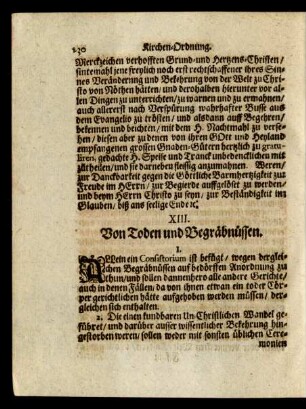 230 Kirchen-Ordnung.
Merckzeichen verhofften Grund- und Hertzens-Christen/
sintemahl jene freylich noch erst rechtschaffener ihres Sin-
nes Veränderung und Bekehrung von der Welt zu Chri-
sto von Nöthen hätten/ und derohalben hierunter vor al-
len Dingen zu unterrichten/ zu warnen und zu ermahnen/
auch allererst nach Verspürung wahrhafter Busse aus
dem Evangelio zu trösten/ und alsdann auff Begehren/
bekennen und beichten/ mit dem H. Nachtmahl zu verse-
hen/ diesen aber zu denen von ihren GOtt und Heyland
empfangenen grossen Gnaden-Gütern hertzlich zu gratu-
liren, gedachte H. Speise und Tranck unbedencklich mit-
zutheilen/ und sie darneben fleissig anzumahnen. Weren/
zur Danckbarkeit gegen die Göttliche Barmhertzigkeit zur
Freude im HErrn/ zur Begierde auffgelöset zu werden/
und beym HErrn Christo zu seyn, zur Beständigkeit im
Glauben/ biß ans seelige Ende ꝛc.
XIII.
Von Toden und Begräbnüssen.
1.
ALlein ein Consistorium ist befugt/ wegen derglei-
chen Begräbnüssen auf bedörffen Anordnung zu
thun/ und sollen dannenhero alle andere Gerichte/
auch in denen Fällen/ da von ihnen etwan ein toder Cör-
per gerichtlichen hätte aufgehoben werden müssen/ der-
gleichen sich enthalten.
2. Die einen kundbaren Un-Christlichen Wandel ge-
führet/ und darüber ausser wissentlicher Bekehrung hin-
gestorben weren/ sollen weder mit sonsten üblichen Cere-
monien